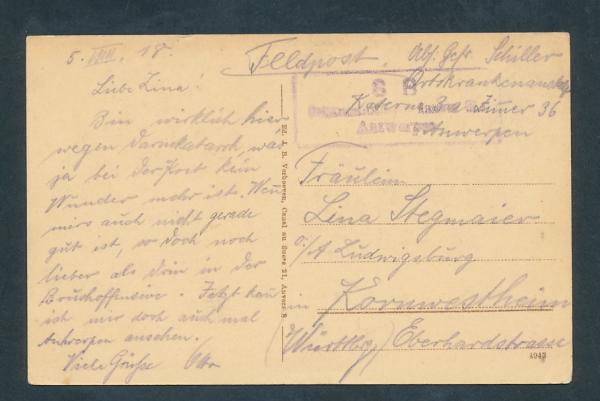 5. VIII. 18.
Liebe Lina!
Bin wirklich hier
wegen Darmkatarrh, was
ja bei der Kost kein
Wunder mehr ist. Wenn
mirs auch nicht gerade
gut ist, so doch noch
lieber als drin in der
Jetzt kann
ich mir doch auch mal
Antwerpen ansehen.
Viele Grüsse Otto
Ed. J. B. Verhoeven, Canal au Sucre 21, Anvers 8
Feldpost. Abs. Gefr. Schiller
Ortskrankenanstalt
Kaserne Zimmer 36
Antwerpen
S B
Antwerpen
Fräulein
Lina Stegmaier
O/A Ludwigsburg
in Kornwestheim
(Württbg.) Eberhardstrasse
1943